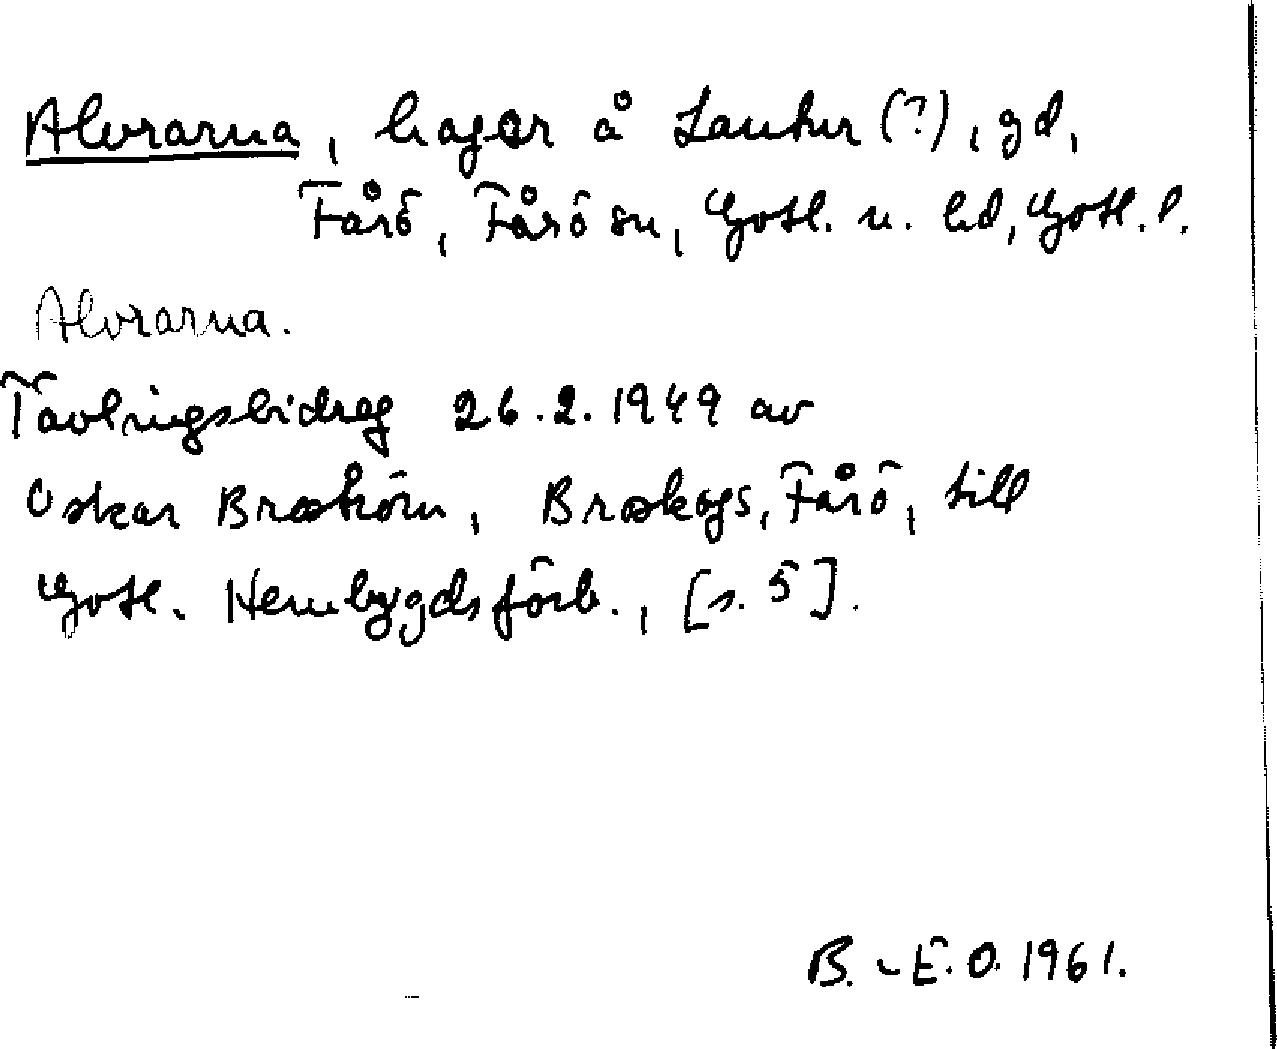 Alvrarna, hagar å Lautur (?), gd,
Fårö, Fårö sn, Gotl. n. hd, Gotl. l.
Alvrarna.
Tävlingsbidrag 26.2.1949 av
Oskar Broström, Broskogs, Fårö, till
Gotl. Hembygdsförb., [s. 5].
B.-E.O. 1961.